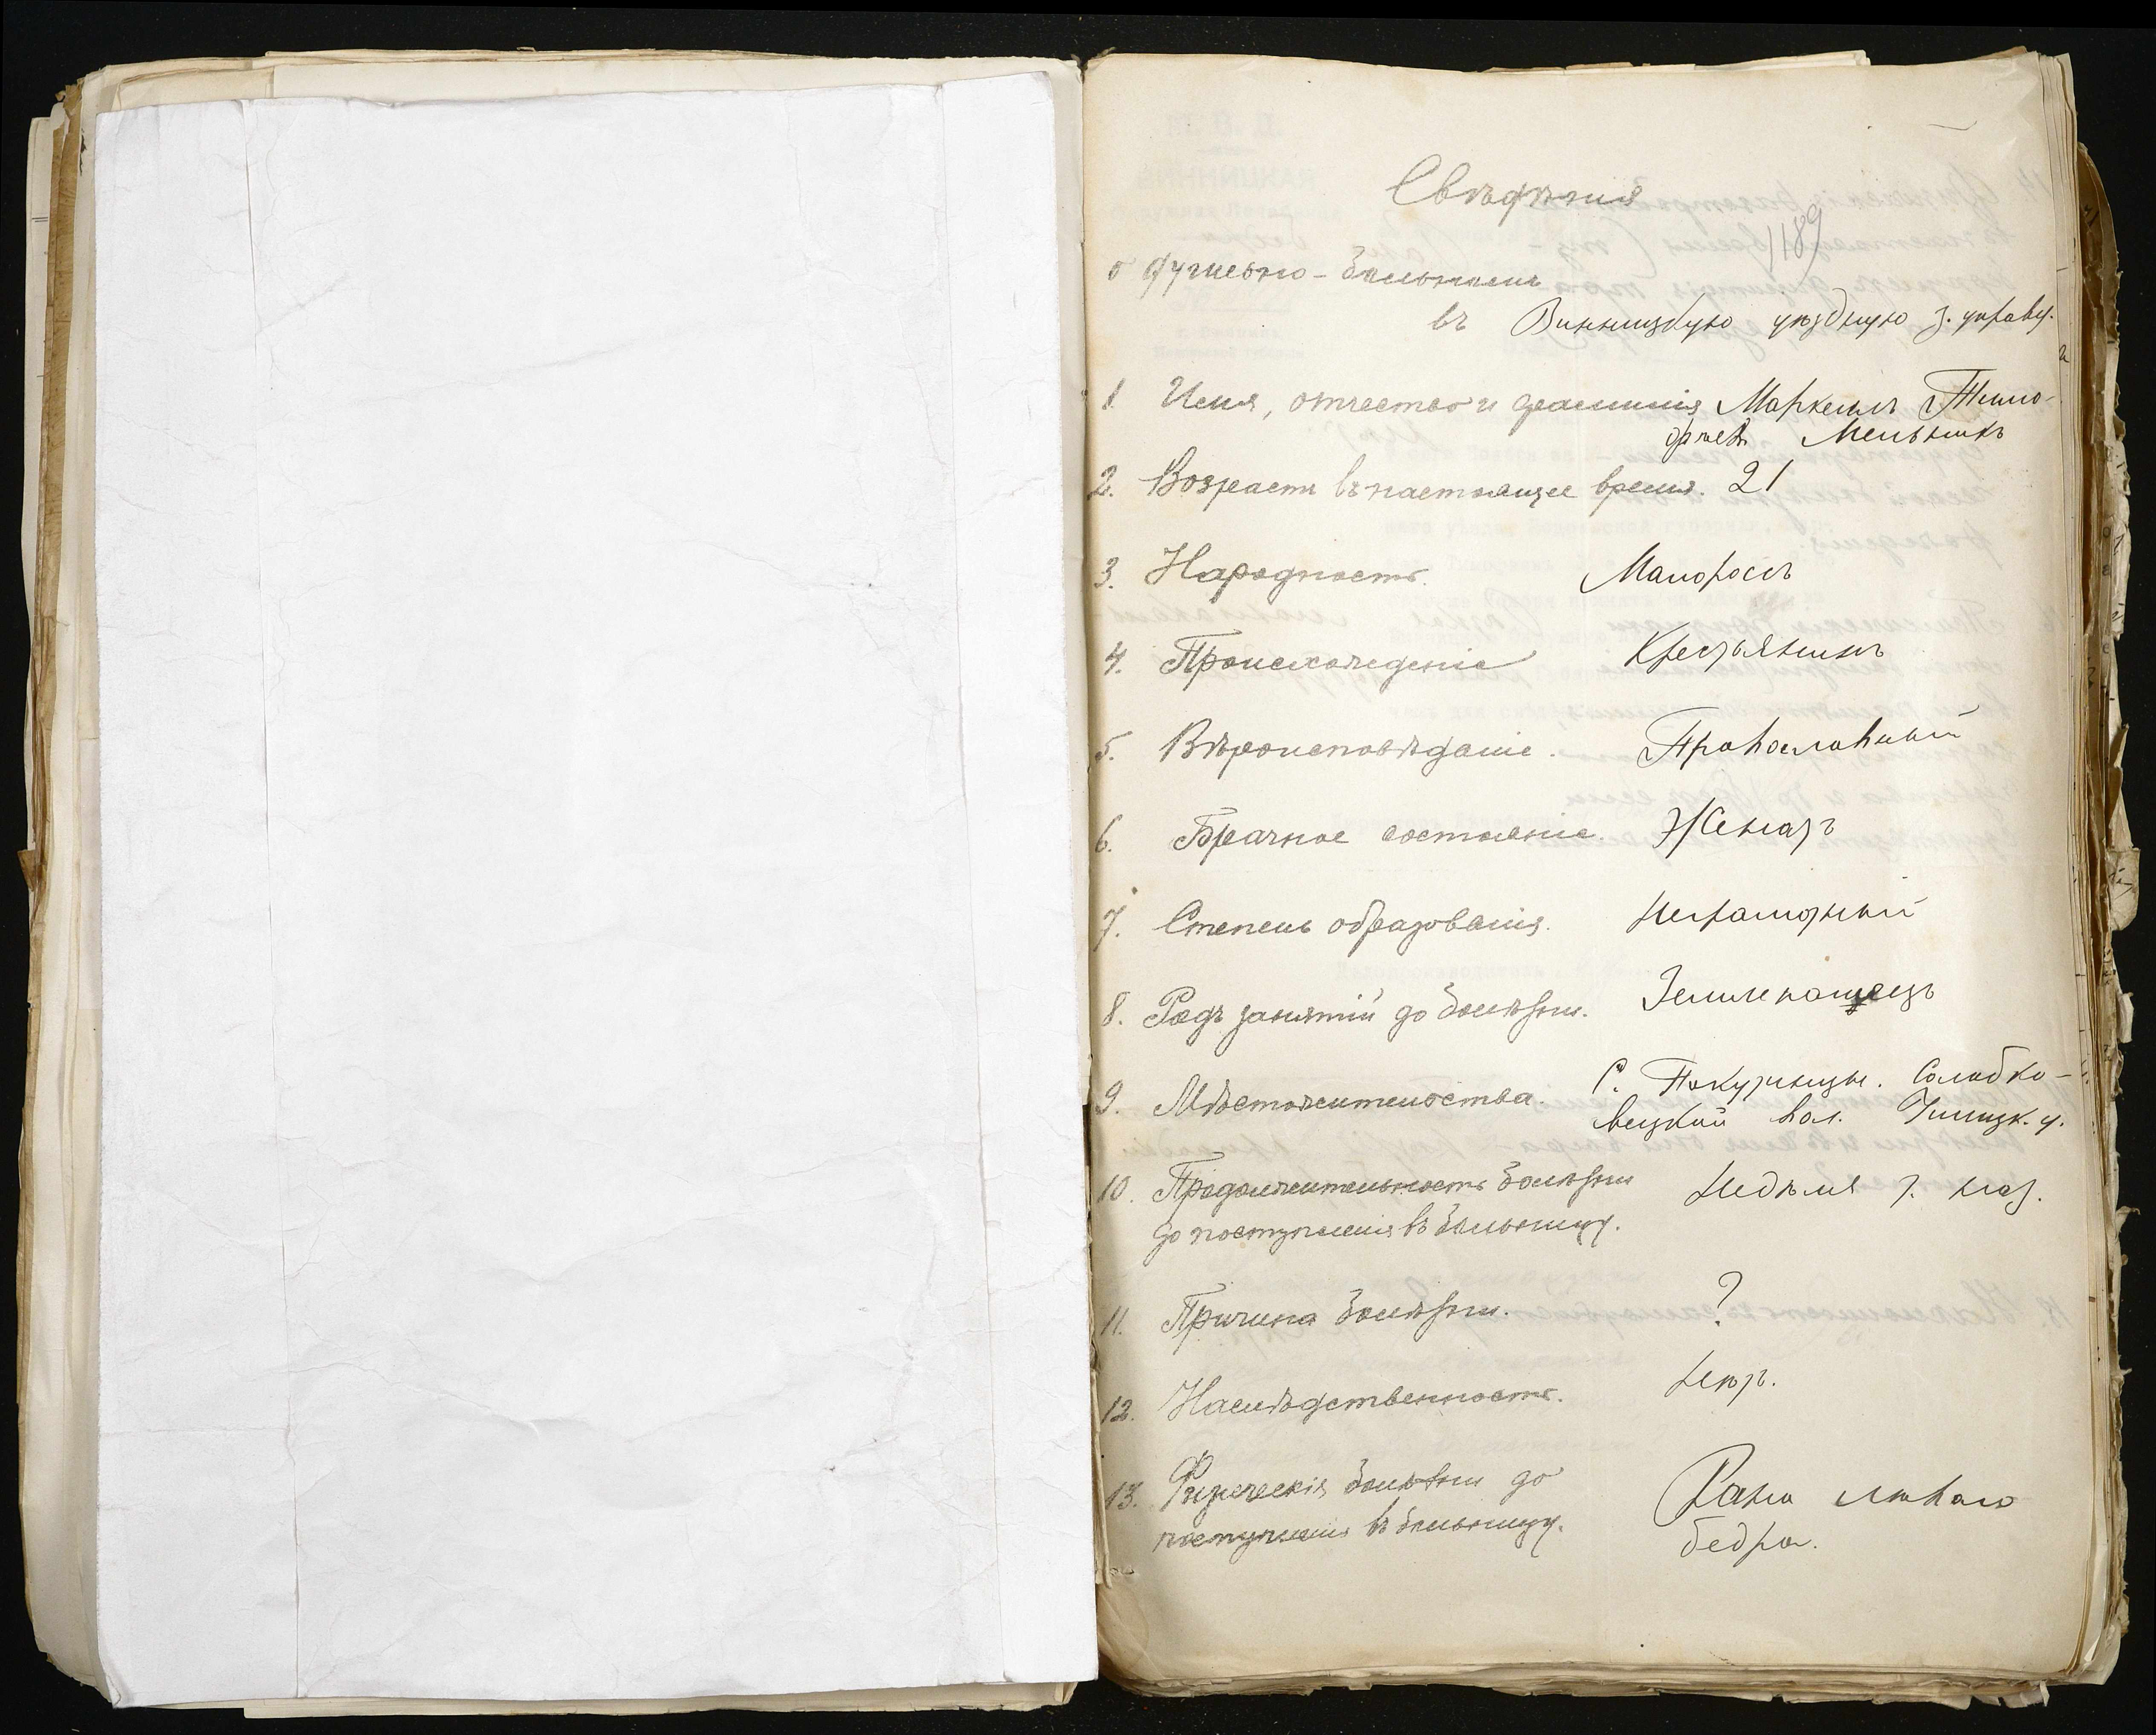 Свѣдѣнія
1189
о душевно-больномъ
въ Винницкую уѣздную з. управу.
1. Имя, отчество и фамилія Маркелъ Тимо-
фѣев. Мельникъ
2. Возрастъ въ настоящее время. 21
3. Народность. Малороссъ
4. Происхожденіе Крестьянинъ
5. Вѣроисповѣданіе. Православный
6. Брачное состояніе. Женатъ
7. Степень образованія. Неграмотный
8. Родъ занятій до болѣзни. Землепашецъ
9. Мѣстожительства. С. Пикурницы.
вецкой вол. у.
10. Продолжительность болѣзни Недѣля т. наз.
до поступленія въ больницу.
11. Причина болѣзни. ?
12. Наслѣдственность. Нѣтъ.
13. Физическія болѣзни до Рана лѣваго
поступленія въ больницу. бедра.